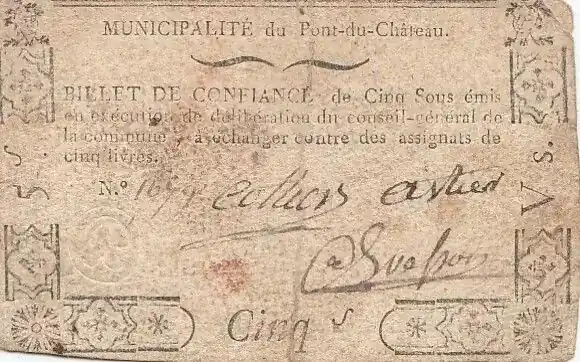 MUNICIPALITÉ du Pont-du-Château.
BILLET DE CONFIANCE de Cinq Sous émis
en exécution de délibération du conseil-général de
la commune, à échanger contre des assignats de
cinq livres.
N.º
5 s
V s.
Cinq s